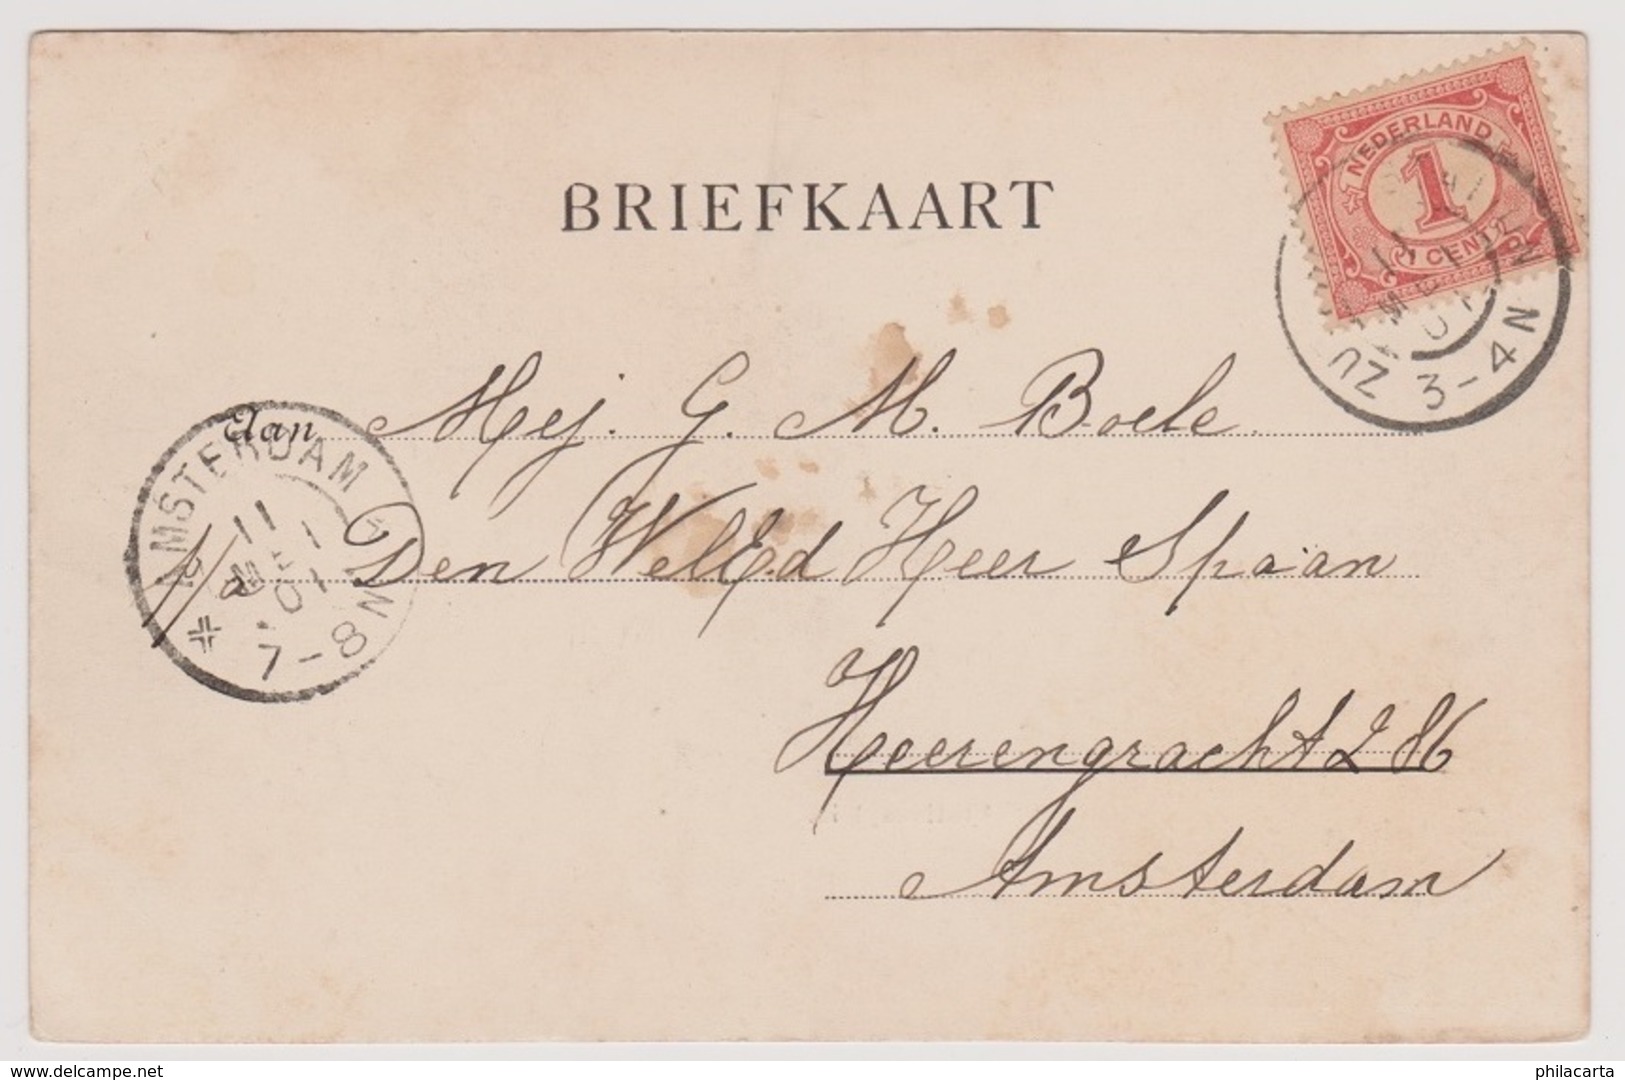 BRIEFKAART
NEDERLAND
1
1 CENT
3-4N
Aan Mej. G. M. Boele
p/a Den WelEd Heer Spaan
Heerengracht 286
Amsterdam
AMSTERDAM
11
MEI
01
7-8N
delcampe.net
philacarta